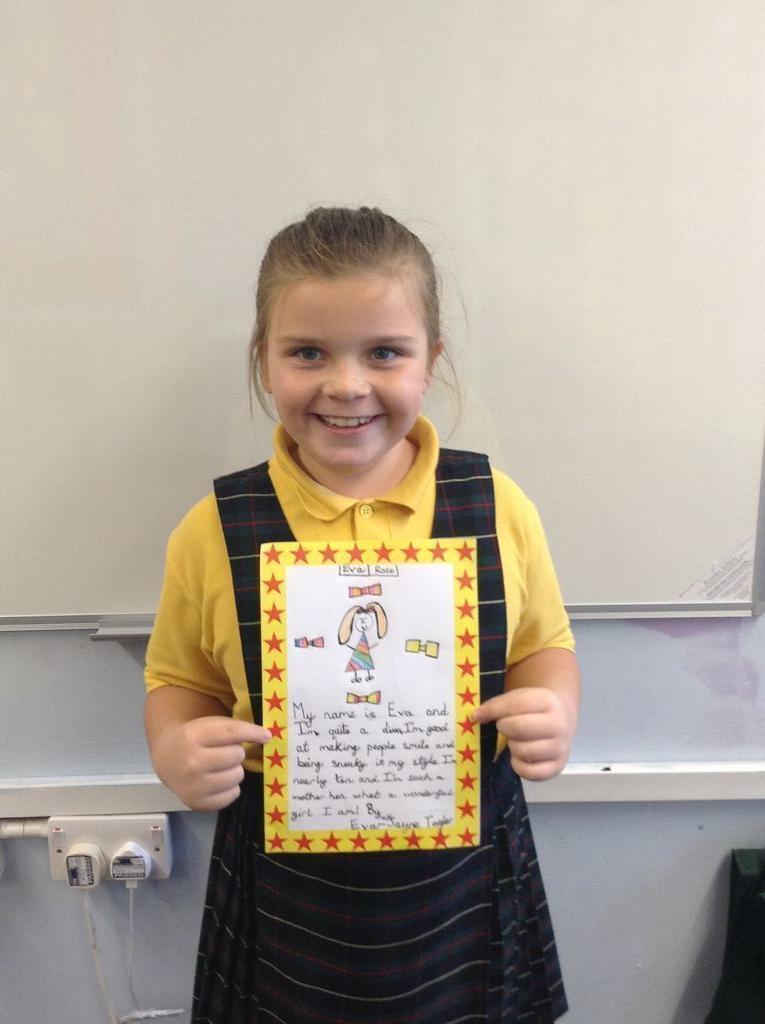 Eva Rose
My name is Eva and
I'm quite a diva, I'm good
at making people smile and
being sneaky is my style I'm
nearly ten and I'm such a
mother hen what a wonderful
girl I am! By
Eva-Jayne Taylor